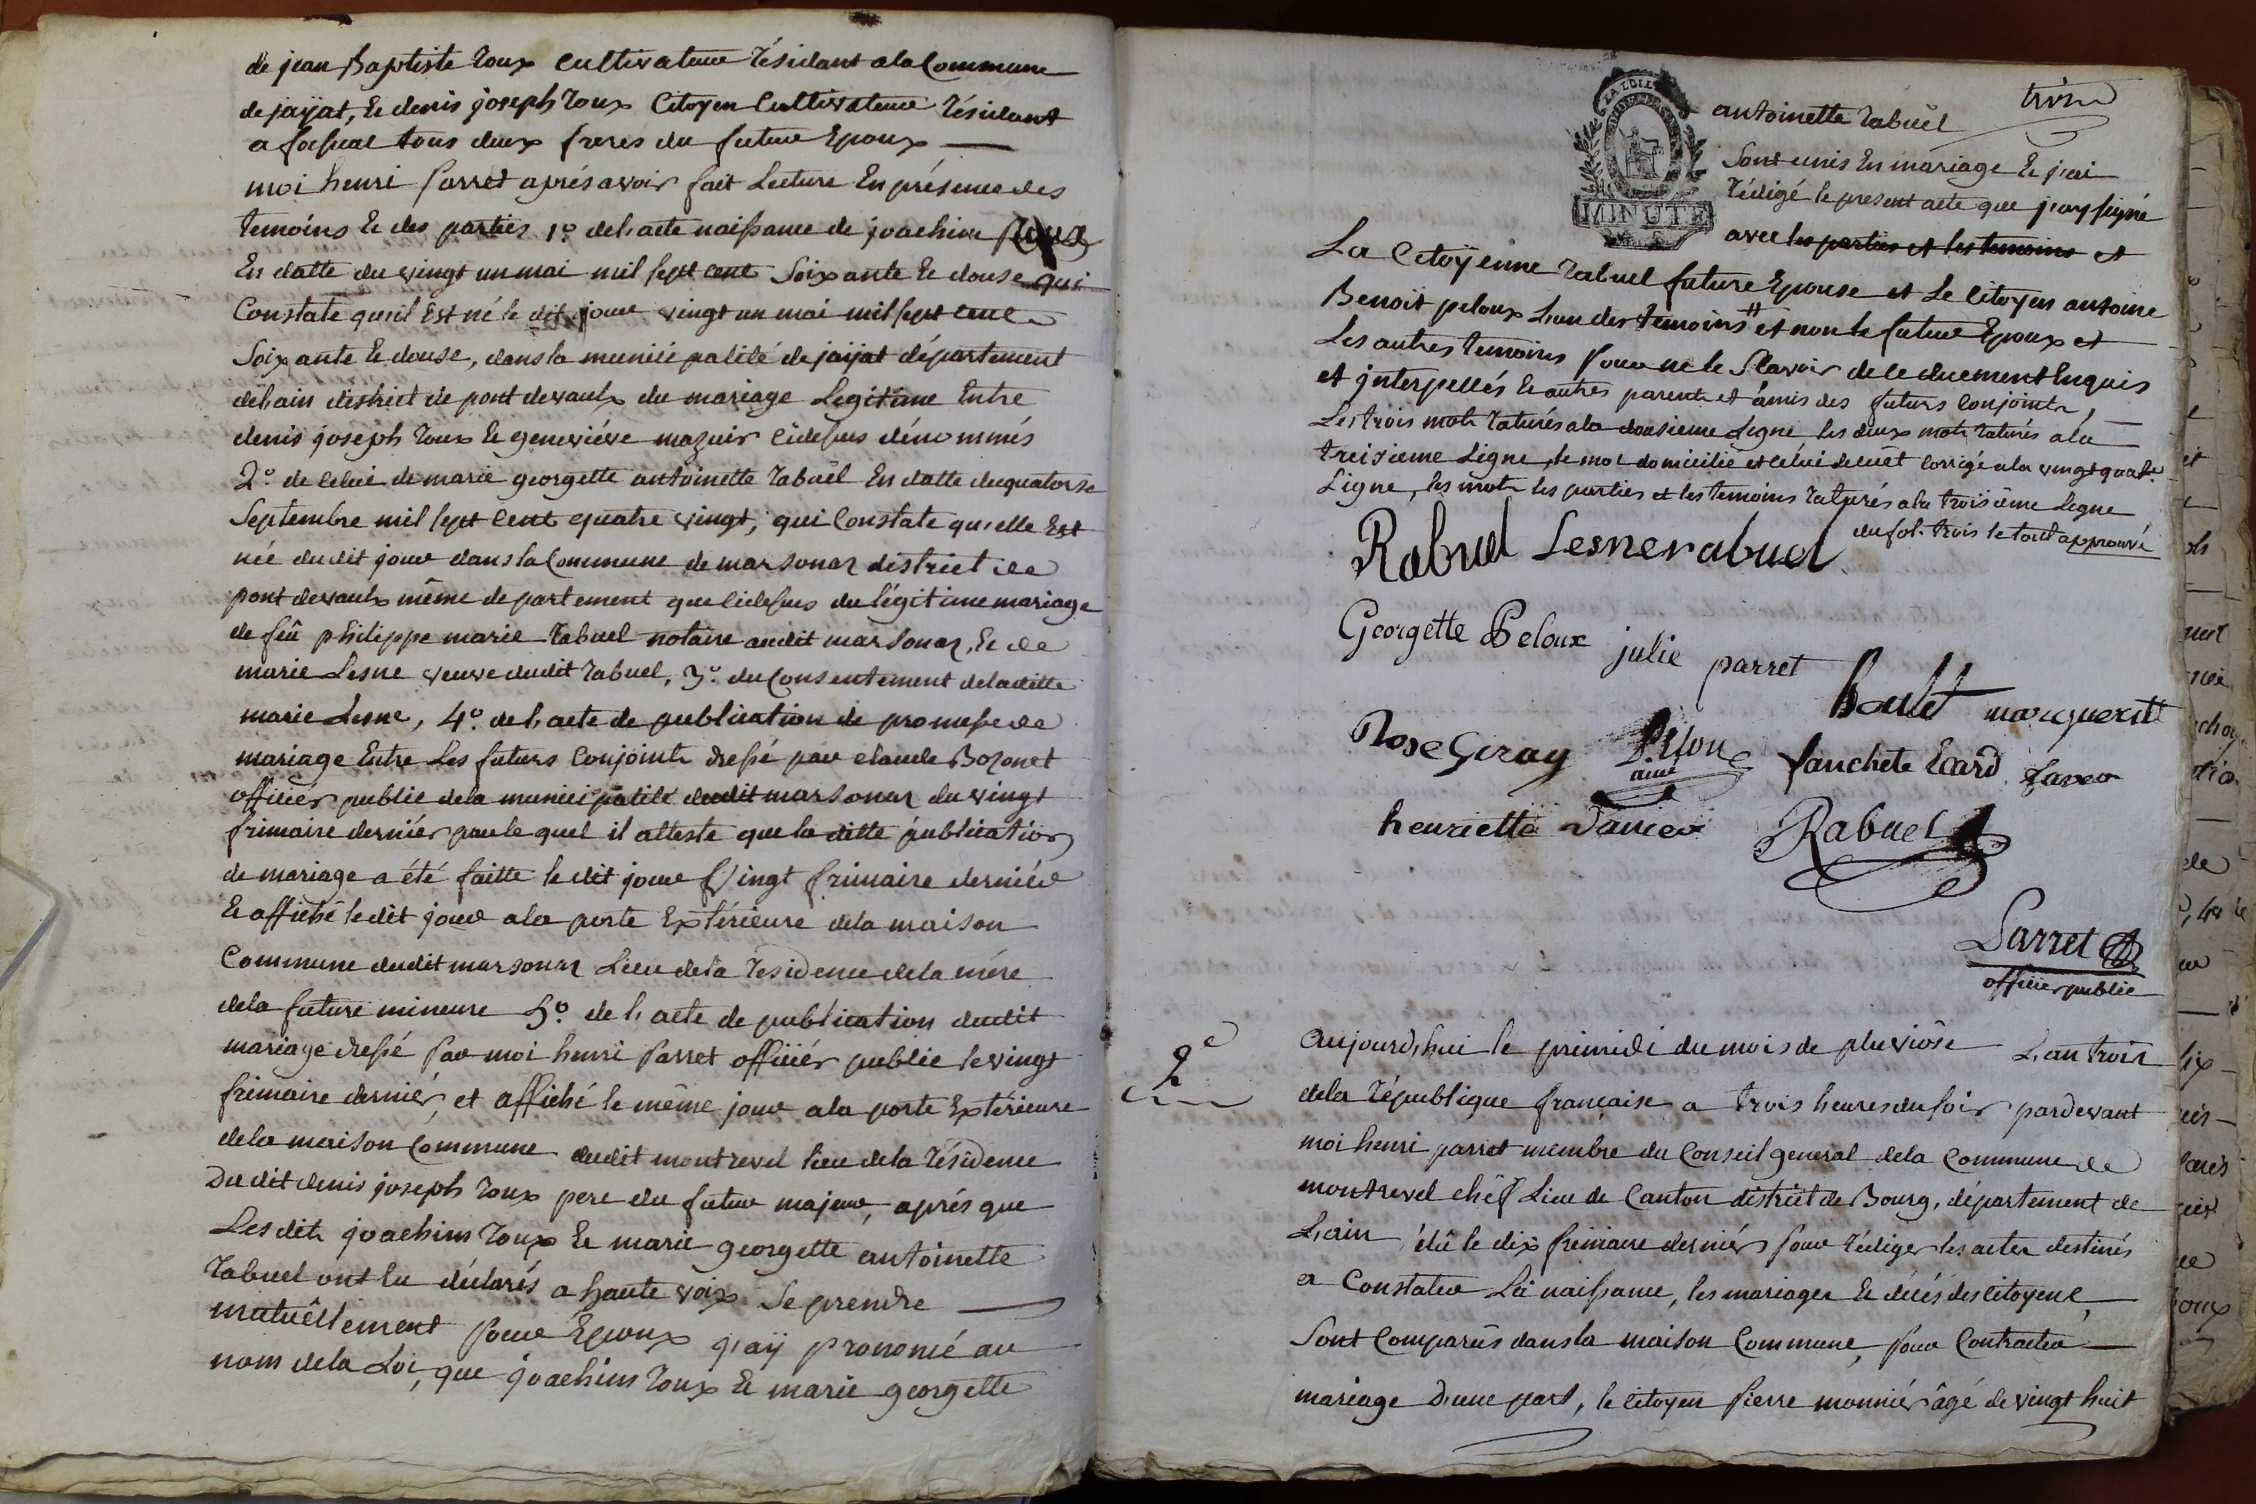 de jean Baptiste Roux cultivateur résidant a la Commune
de jaÿat, & denis joseph Roux Citoyen Cultivateur résidant
a foissiat tous deux freres du futur Epoux
moi henri Parret après avoir fait Lecture En présence des
temoins & des parties 1.º de l'acte naissance de joachim Roux
En datte du vingt un mai mil sept cent Soixante & douse qui
Constate qu'il Est né le dit jour vingt un mai mil sept cent
Soixante & douse, dans la municipalité de jaÿat département
de l'ain district de pont devaulx du mariage Legitime Entre
denis joseph Roux & geneviéve mazuir cidessus dénommés
2.º de celui de marie georgette antoinette Rabuel En datte du quatorse
Septembre mil sept Cent quatre vingt, qui Constate qu'elle Est
née du dit jour dans la Commune de marsonaz district de
pont devaulx même departement que cidessus du légitime mariage
de feû philippe marie Rabuel notaire audit marsonaz, & de
marie Lesne veuve dudit Rabuel, 3.º du Consentement de laditte
marie Lesne, 4.º de l'acte de publication de promesse de
mariage Entre Les futurs Conjoints dressé par claude Bozonet
officiér public de la municipalité dudit marsonaz du vingt
frimaire derniér par le quel il atteste que la ditte publication
de mariage a été faitte le dit jour Vingt frimaire derniér
& affiché le dit jour a la porte Extérieure de la maison
Commune dudit marsonaz Lieu de la résidence de la mére
de la future mineure 5.º de l'acte de publication dudit
mariage dressé par moi henri Parret officiér public le vingt
frimaire derniér, et affiché le même jour a la porte Extérieure
de la maison Commune dudit montrevel lieu de la résidence
Du dit denis joseph Roux pere du futur majeur, aprés que
Les dits joachim Roux & marie georgette antoinette
Rabuel ont Eu déclarés a haute voix Se prendre
mutuêllement pour Epoux j'aÿ prononcé au
nom de la Loi, que joachim Roux & marie georgette
trois
LA LOI
MINUTE
antoinette Rabuel
Sont unis En mariage & j'ai
rédigé le present acte que j'ay signé
avec les parties et les temoins et
La Citoÿenne Rabuel future Epouse et Le Citoyen antoine
Benoit peloux L'un des temoins et non le futur Epoux et
Les autres temoins pour ne le Sçavoir de ce duement Enquis
et interpellés & autres parents et amis des futurs Conjoints,
Les trois mots raturés a la dousieme Ligne les deux mots raturés a la
treisieme Ligne, le mot domicilié et celui de cuet corrigé a la vingt quatre
Ligne, les mots les parties et les temoins raturés a la troisième Ligne
du fol. trois le tout approuvé
Rabuel Lesne rabuel
Georgette Peloux julie parret
boulet marguerite
Rose Geray Piton fanchete Ecard
ainé
henriette Rabuel
Parret
officier public
2e
Aujourd'hui le primidi du mois de pluviôse L'an trois
de la république française a trois heures du soir pardevant
moi henri parret membre du Conseil general de la Commune de
montrevel chêf Lieu de Canton district de Bourg, département de
L'ain élû le dix frimaire derniér pour rédiger les actes destinés
a Constater La naissance, les mariages & décés des Citoyens,
Sont Comparûs dans la maison Commune, pour Contracter
mariage D'une part, le Citoyen Pierre monniér âgé de vingt huit